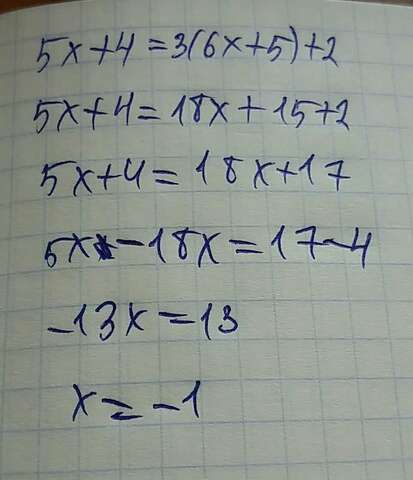 5x+4=3(6x+5)+2
5x+4=18x+15+2
5x+4=18x+17
5x-18x=17-4
-13x=13
x=-1